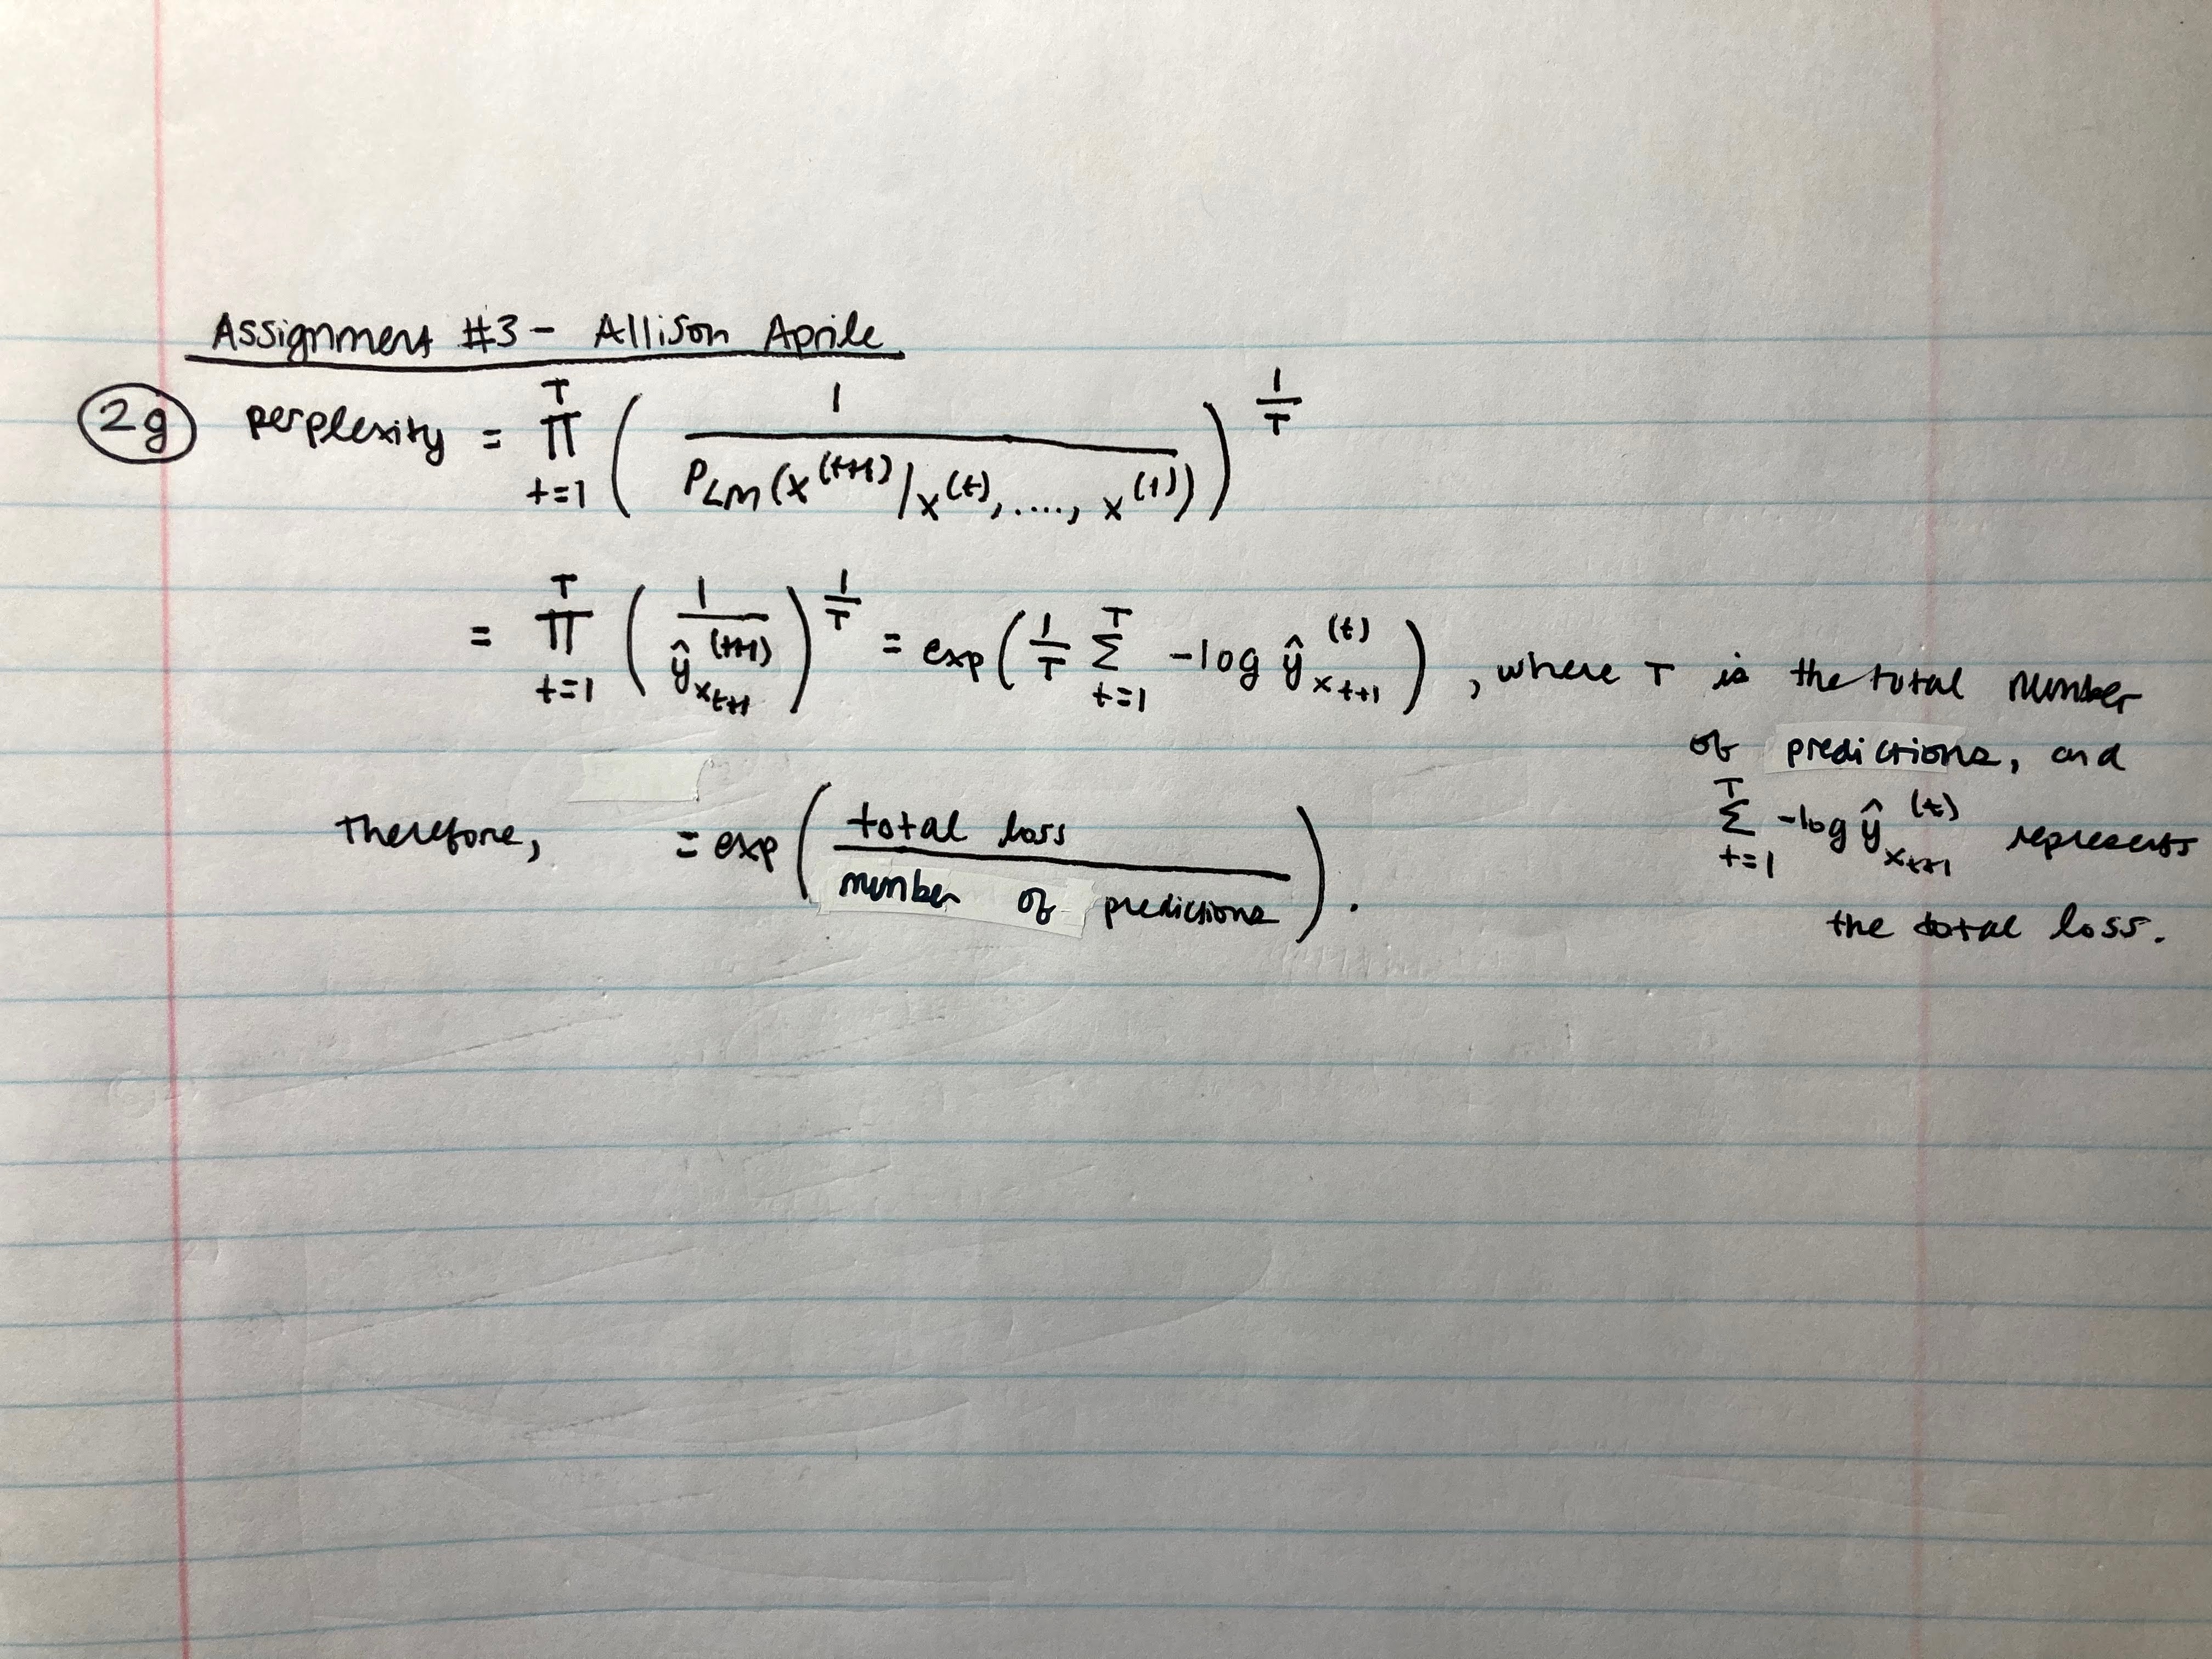 Assignment #3 - Allison Aprile
2g perplexity = ∏_{t=1}^{T} ( 1 / P_{LM}(x^{(t+1)} | x^{(t)}, ...., x^{(1)}) )^{1/T}
= ∏_{t=1}^{T} ( 1 / ŷ_{x_{t+1}}^{(t+1)} )^{1/T} = exp( 1/T ∑_{t=1}^{T} -log ŷ_{x_{t+1}}^{(t)} ), where T is the total number
of predictions, and
∑_{t=1}^{T} -log ŷ_{x_{t+1}}^{(t)} represents
the total loss.
Therefore, = exp( total loss / number of predictions ).